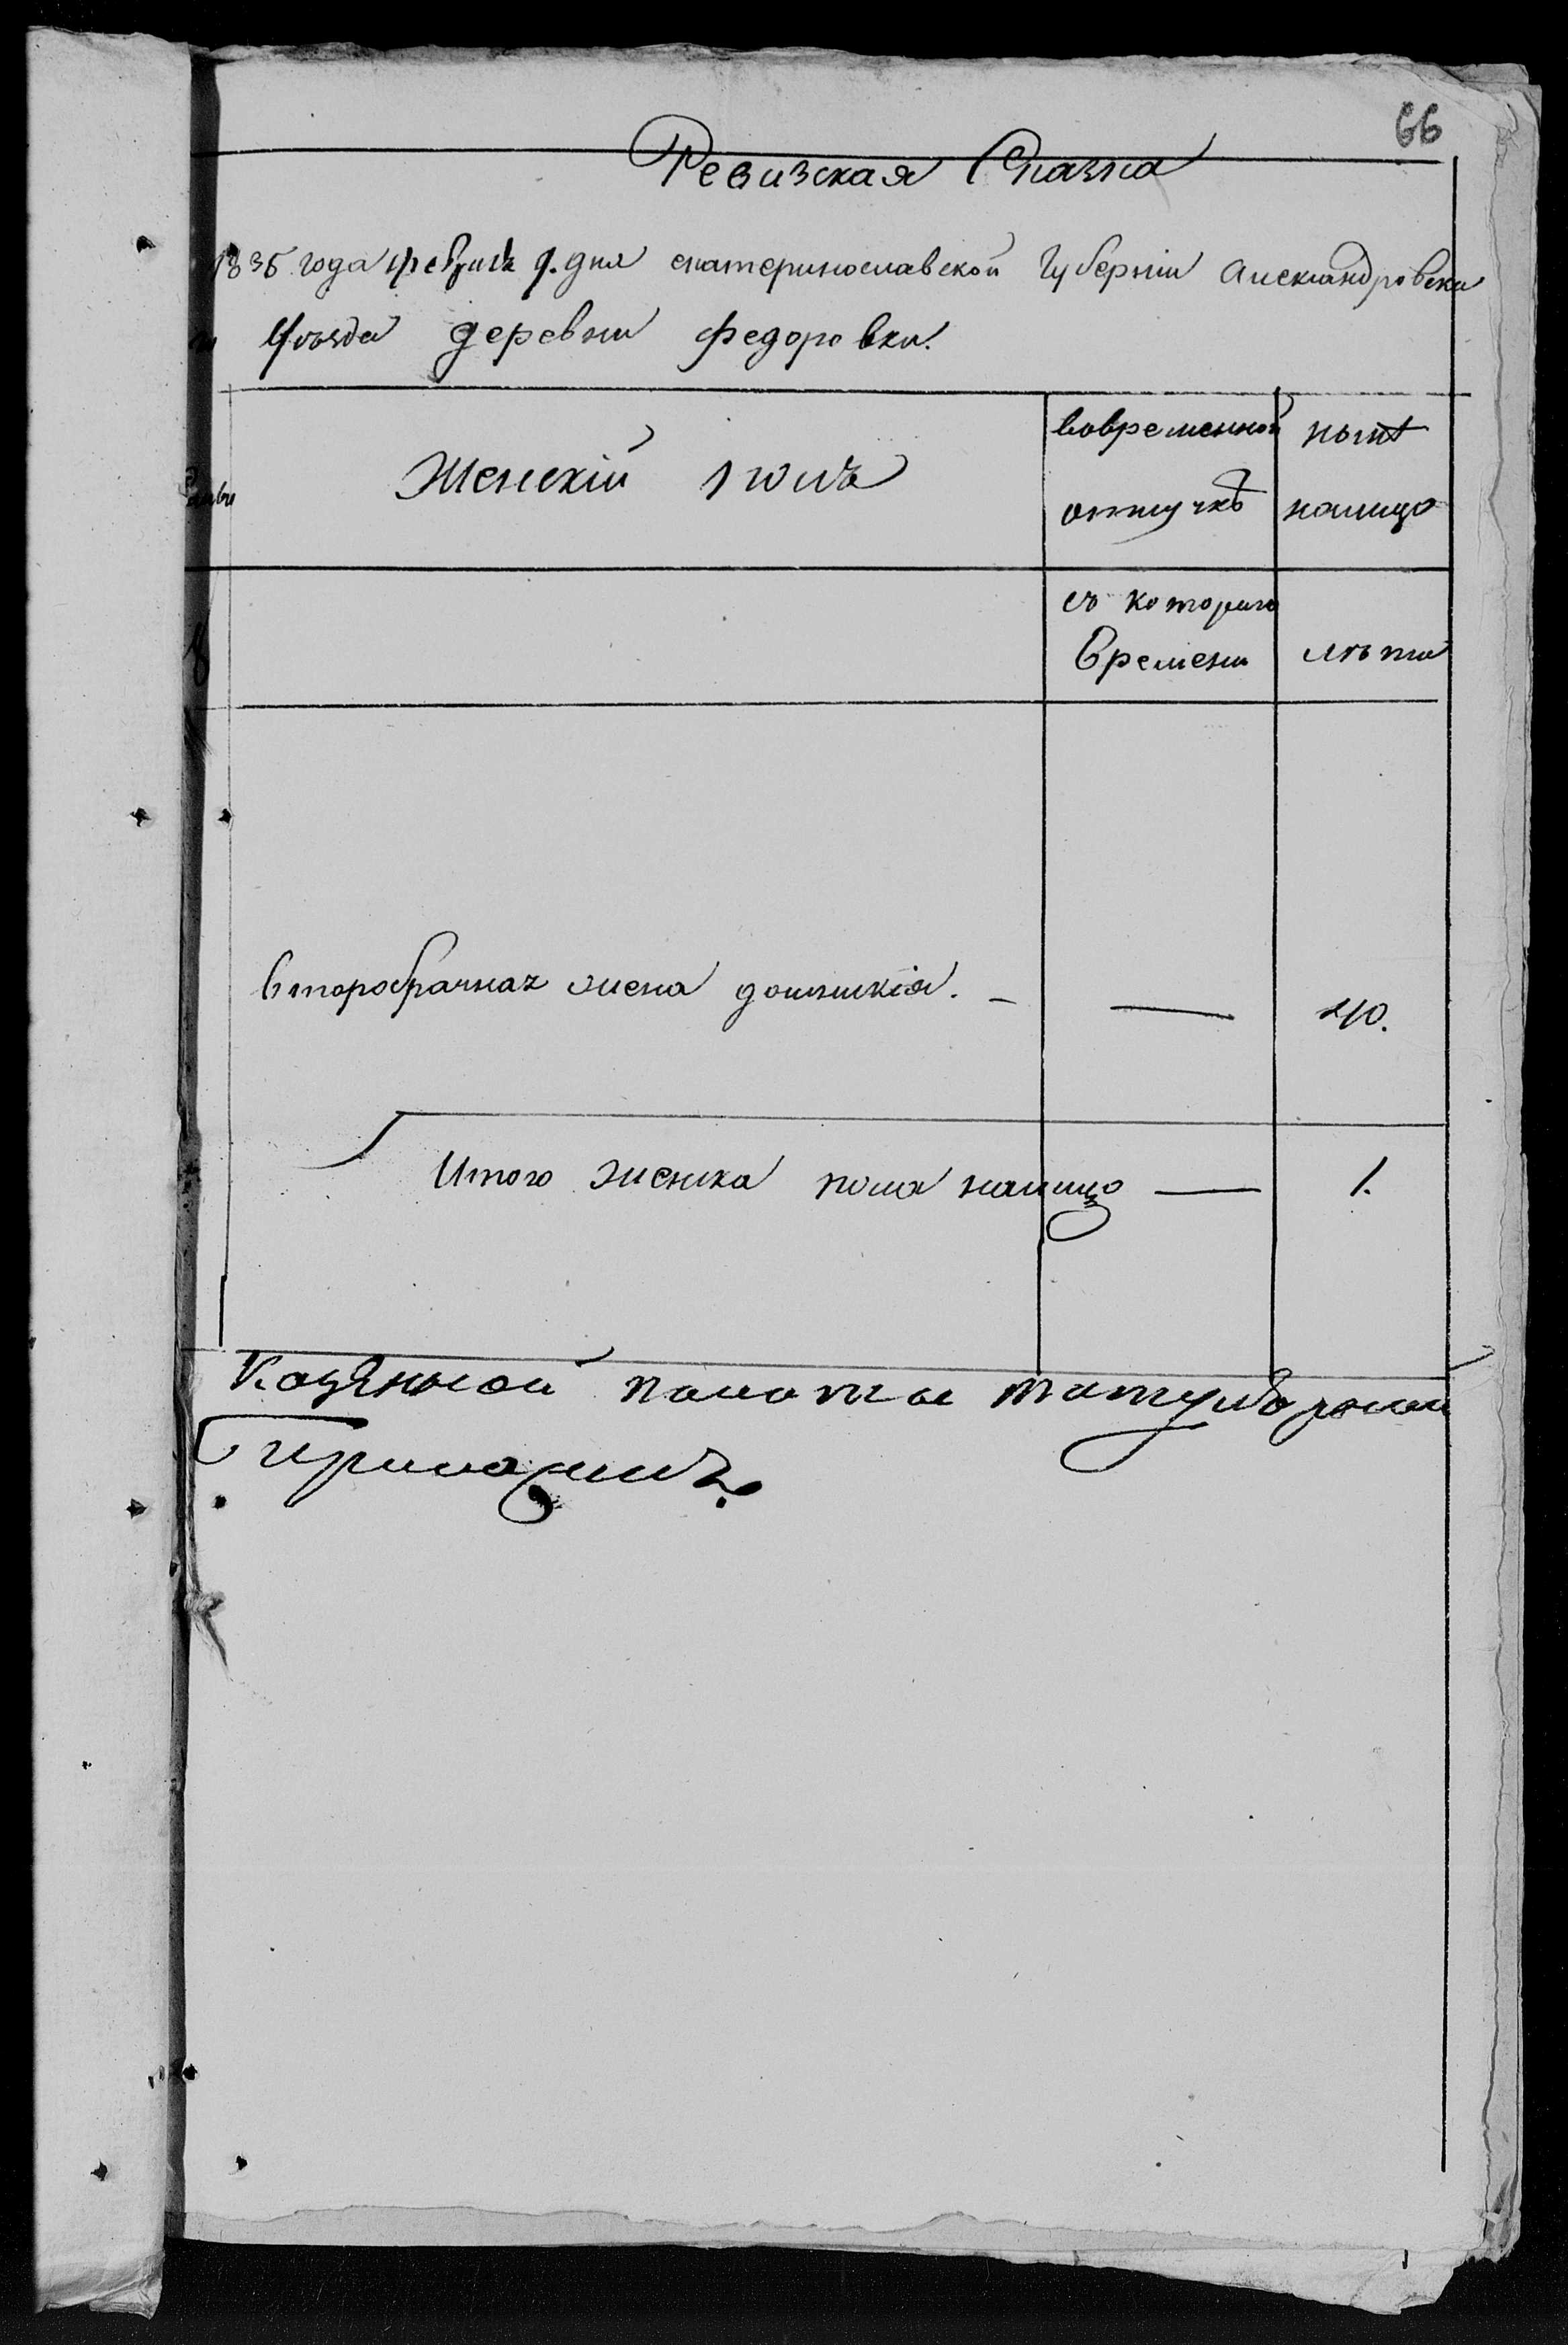 66
Ревизская Сказка
1835 года февраля 9. дня екатеринославской Губернiи александровска
Уѣзда деревни Федоровки.
Женскiй полъ
вовременной отлучкѣ
нынѣ налицо
съ котораго времени
лѣта
второбрачная жена домникiя. — — 40.
Итого женска пола налицо — 1.
Казенной палаты титулярный